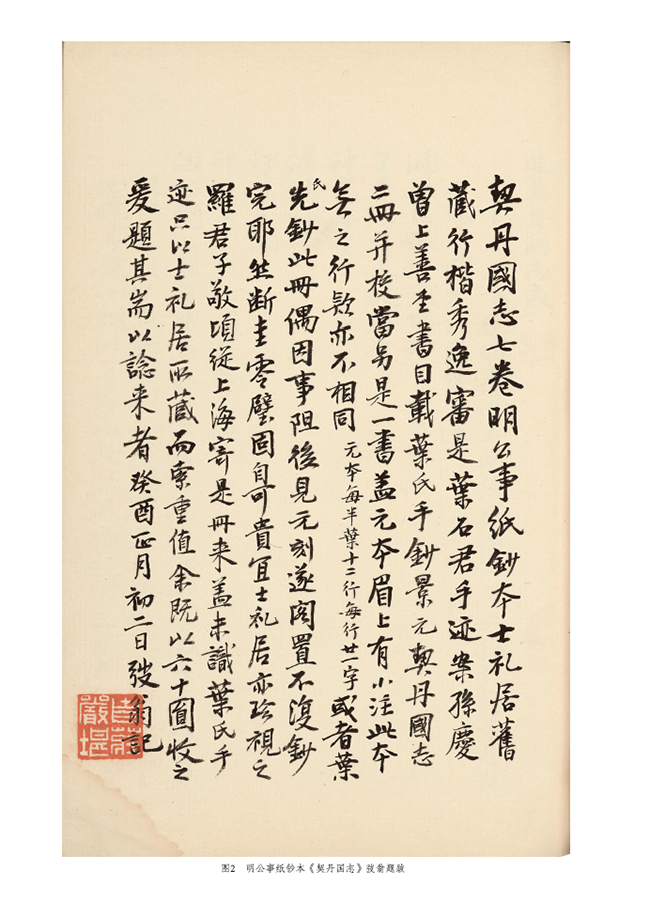 契丹國志七卷明公事紙鈔本士礼居舊
藏行楷秀逸審是葉石君手迹案孫慶
曾上善堂書目載葉氏手鈔景元契丹國志
二冊并校當另是一書蓋元本眉上有小注此本
無之行款亦不相同元本每半葉十二行每行廿一字或者葉
氏先鈔此冊偶因事阻後見元刻遂閣置不復鈔
完耶然斷圭零璧固自可貴宜士礼居亦珍視之
羅君子敬頃從上海寄是冊来蓋未識葉氏手
迹只以士礼居所藏而索重值余既以六十圓收之
爰題其耑以諗来者癸酉正月初二日弢翁記
自莊嚴堪
图2 明公事纸钞本《契丹国志》弢翁题跋